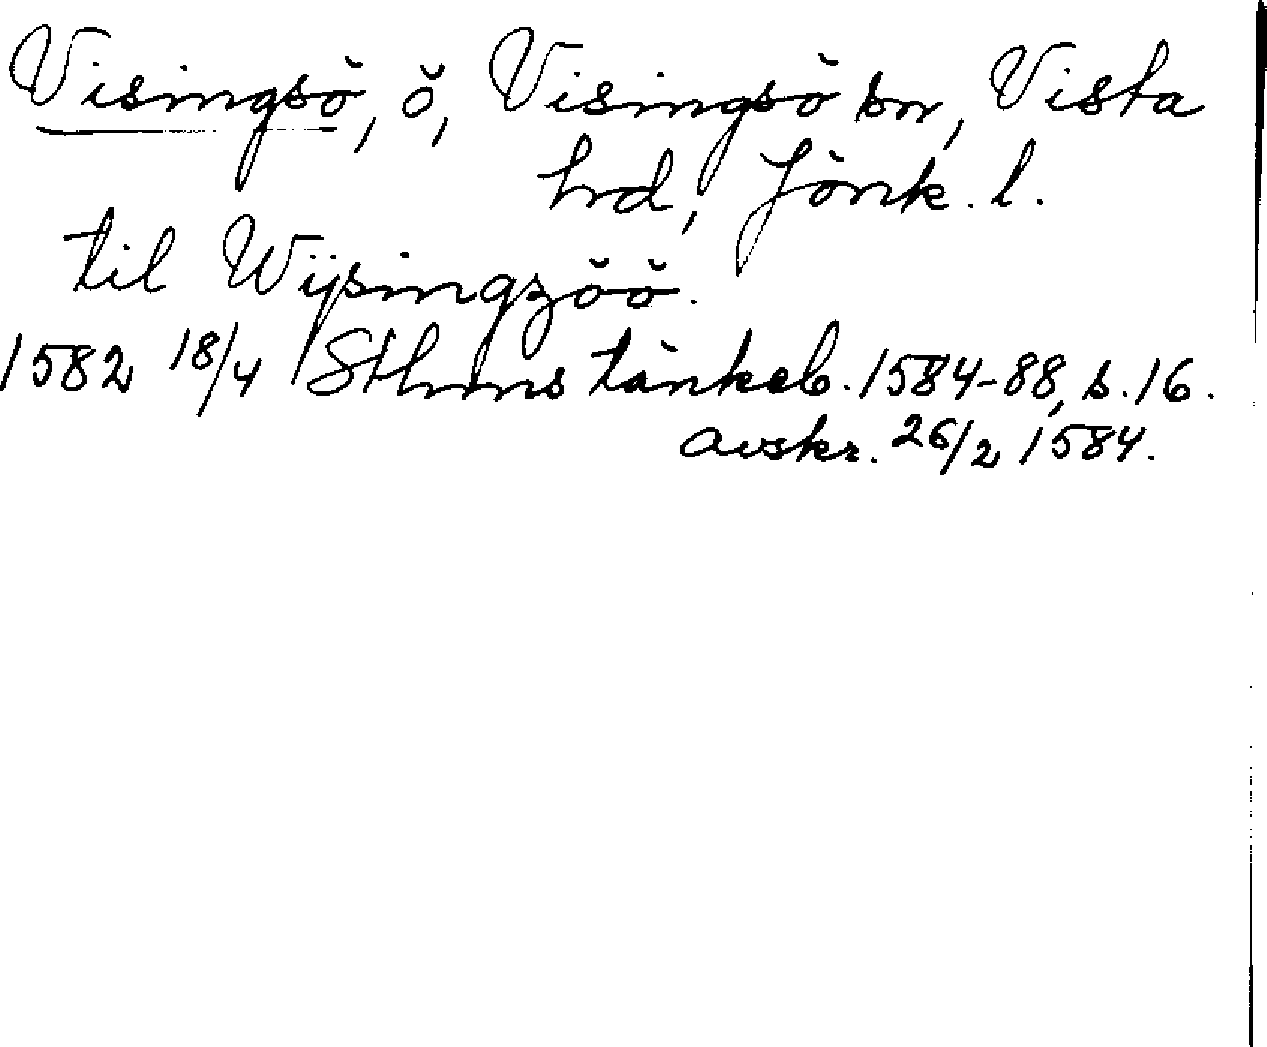 Visingsö, ö, Visingsö sn, Vista
hrd, Jönk. l.
til Wijsingzöö.
1582 18/4 Sthms tänkeb. 1584-88, s. 16.
avskr. 26/2 1584.